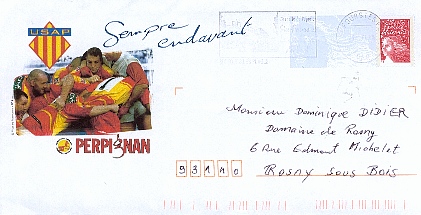 USAP
Sempre
endavant
PERPIGNAN
Monsieur Dominique DIDIER
Domaine de Rosny
6 Rue Edmond Michelet
93140
ROSNY Sous Bois